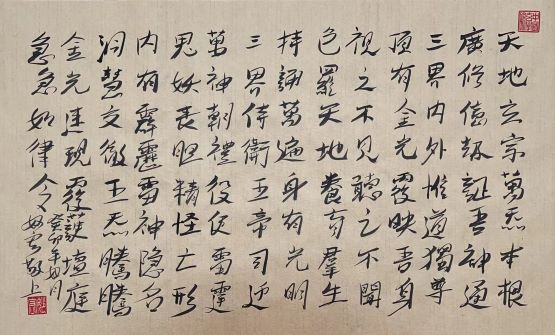 天地玄宗萬炁本根
廣修億劫證吾神通
三界內外惟道獨尊
頂有金光覆映吾身
視之不見聽之不聞
包羅天地養育羣生
持誦萬遍身有光明
三界侍衛五帝司迎
萬神朝禮役使雷霆
鬼妖喪胆精怪亡形
內有霹靂雷神隱名
洞慧交徹五炁騰騰
金光速現覆護壇庭
急急如律令
癸卯年
敬上